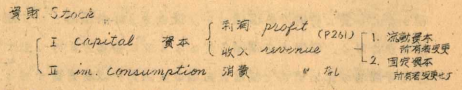 資財 Stock
I capital 資本
利潤 profit
収入 revenue (P261)
1. 流動資本
所有者変更
2. 固定資本
所有者変更せず
II im. consumption 消費 〃 なし